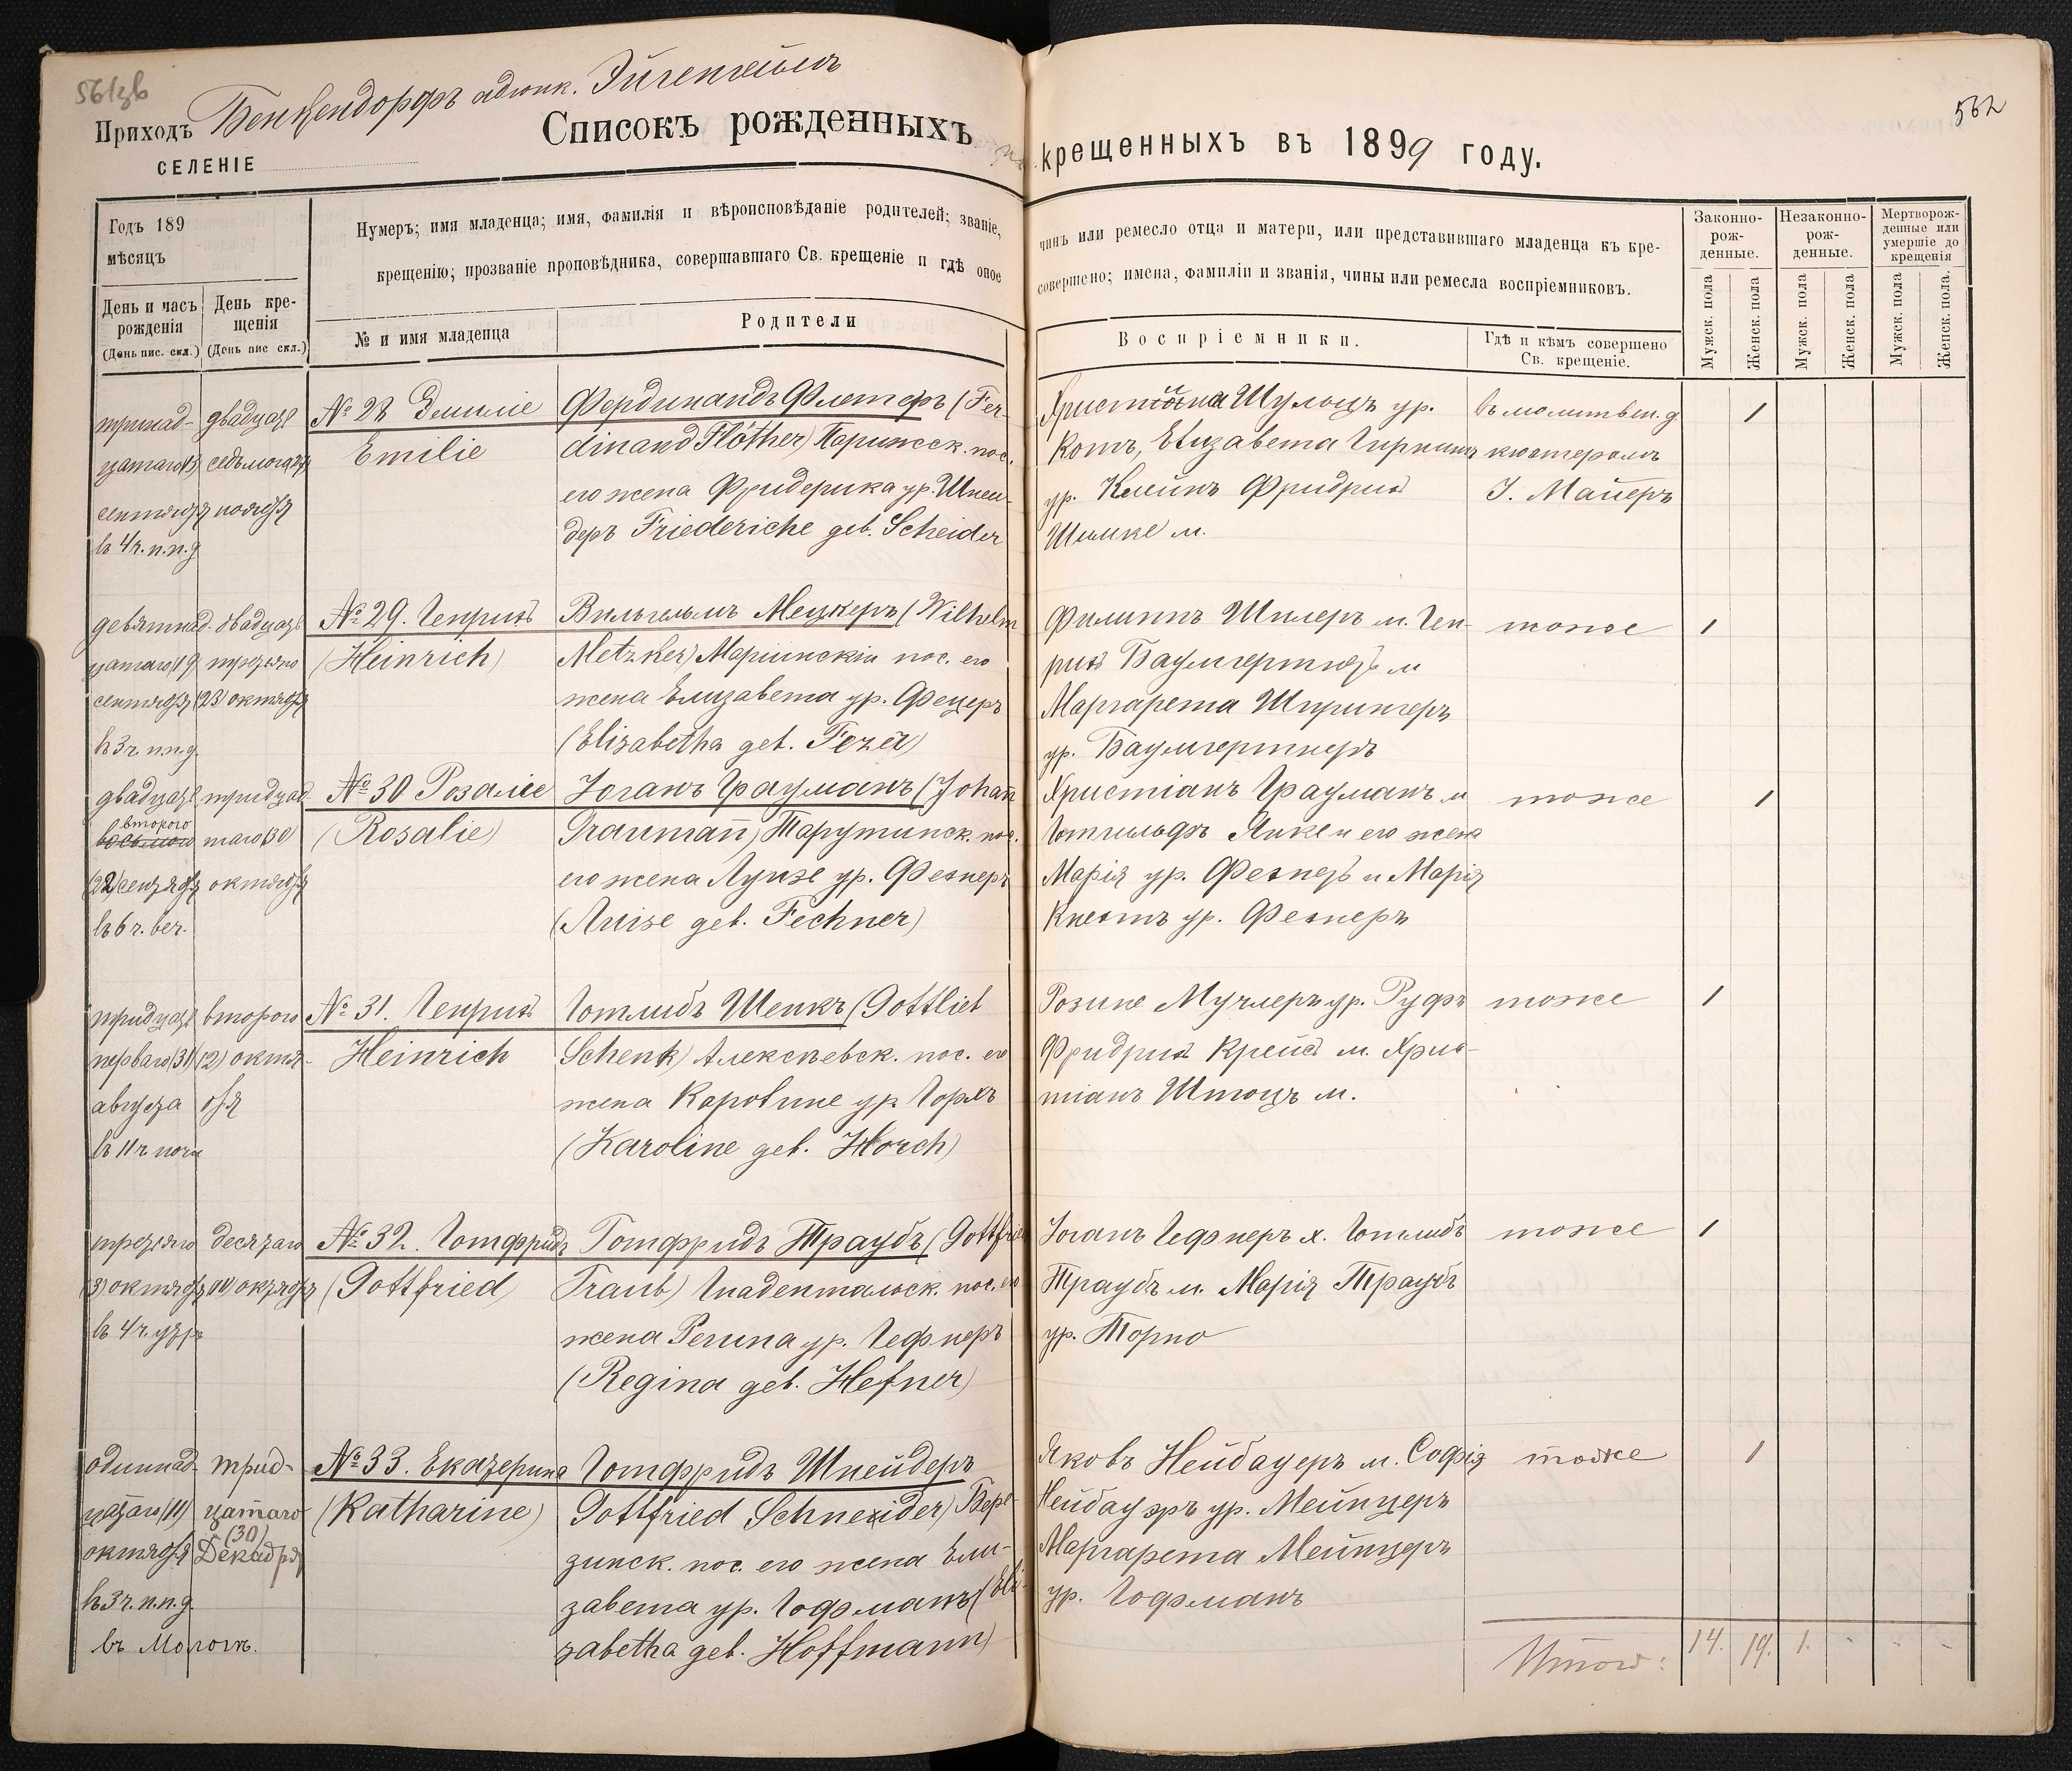 561зв
Приходъ Бенкендорфъ адюнк. Эйгенгеймъ
СЕЛЕНІЕ
Списокъ рожденныхъ и крещенныхъ въ 1899 году.
562
Годъ 189
мѣсяцъ
День и часъ рожденія (День пис. скл.)
День крещенія (День пис скл.)
Нумеръ; имя младенца; имя, фамилія и вѣроисповѣданіе родителей; званіе, чинъ или ремесло отца и матери, или представившаго младенца къ кре-
крещенію; прозваніе проповѣдника, совершавшаго Св. крещеніе и гдѣ оное совершено; имена, фамиліи и званія, чины или ремесла воспріемниковъ.
№ и имя младенца
Родители
Воспріемники.
Гдѣ и кѣмъ совершено Св. крещеніе.
Законно-рож-денные.
Незаконно-рож-денные.
Мертворож-денные или умершіе до крещенія
Мужск. пола
Женск. пола
Мужск. пола
Женск. пола.
Мужск. пола
Женск. пола.
тринад-
цатаго(13)
сентября
въ 4ч.п.п.д
двадцать
седьмого(27)
ноября
№ 28 Эмиліе
Emilie
Фердинандъ Флетеръ (Fer-
dinand Flöther) Парижск. пос.
его жена Фридерика ур. Шней-
деръ Friederiche geb. Scheider
Христина Шульцъ ур.
Котъ, Елизавета
ур. Клейнъ Фридрихъ
Шимке м.
въ молитвен. д
кюстеромъ
І. Майеръ
1
девятнад-
цатаго(19)
сентября
въ 3ч.п.п.д.
двадцать
третьяго
(23) октября
№ 29. Генрихъ
(Heinrich)
Вильгельмъ Мецкеръ (Wilhelm
Metzker) Маріинскій пос. его
жена Елизавета ур. Фецеръ
(Elisabetha geb. Fezer)
Филиппъ Шилеръ м. Ген-
рихъ Баумгертнеръ м
Маргарета Шпрингеръ
ур. Баумгертнеръ
тоже
1
двадцать
второго
восьмого
(22) сентября
въ 6 ч. веч.
тридцад-
таго(30)
октября
№ 30 Розаліе
(Rosalie)
Іоганъ Трауманъ (Johañ
Traumañ) Тарутинск. пос.
его жена Луизе ур. Фехнеръ
(Luise geb. Fechner)
Христіанъ Трауманъ м
Готгильфъ Янке и его жена
Марія ур. Фехнеръ и Марія
Кнехтъ ур. Фехнеръ
тоже
1
тридцать
перваго(31)
августа
въ 11ч. ночи
второго
(2) октя-
бря
№ 31. Генрихъ
Heinrich
Готлибъ Шенкъ (Gottlieb
Schenk) Алексѣевск. пос. его
жена Каролине ур. Горхъ
(Karoline geb. Horch)
Розине Мучлеръ ур. Руфъ
Фридрихъ Крейсъ м. Хрис-
тіанъ Штоцъ м.
тоже
1
третьяго
(3) октября
въ 4ч. утра
десятаго
(10) октября
№ 32. Готфридъ
(Gottfried)
Готфридъ Траубъ (Gottfried
Traub) Гнадентальск. пос. его
жена Регина ур. Гефнеръ
(Regina geb. Hefner)
Іоганъ Гефнеръ х. Готлибъ
Траубъ м. Марія Траубъ
ур. Торно
тоже
1
одиннад-
цатаго(11)
октября
въ 3ч.п.п.д.
въ Молочн.
трид-
цатаго
(30)
Декабря
№ 33. Екатерина
(Katharine)
Готфридъ Шнейдеръ
Gottfried Schneider) Бере-
зинск. пос. его жена Ели-
завета ур. Гофманъ (Eli-
zabetha geb. Hoffmann)
Яковъ Нейбауеръ м. Софія
Нейбауэръ ур. Мейнцеръ
Маргарета Мейнцеръ
ур. Гофманъ
тоже
1
Итого: 14. 19. 1. - - -